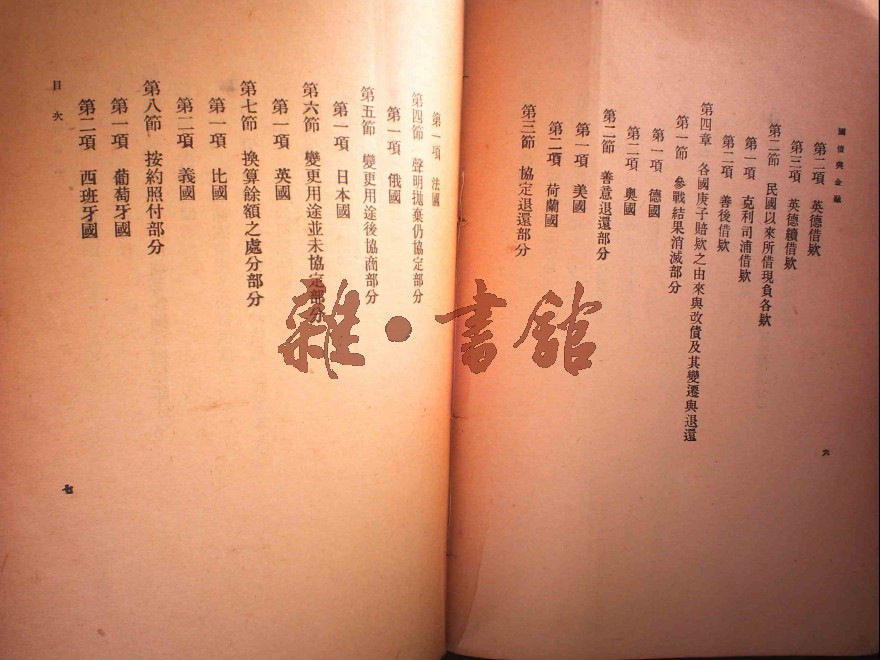 國債與金融
第二項　英德借款
第三項　英德續借款
第二節　民國以來所借現負各款
第一項　克利司浦借款
第二項　善後借款
第四章　各國庚子賠款之由來與改債及其變遷與退還
第一節　參戰結果消滅部分
第一項　德國
第二項　奧國
第二節　善意退還部分
第一項　美國
第二項　荷蘭國
第三節　協定退還部分
六
第一項　法國
第四節　聲明拋棄仍協定部分
第一項　俄國
第五節　變更用途後協商部分
第一項　日本國
第六節　變更用途並未協定部分
第一項　英國
第七節　換算餘額之處分部分
第一項　比國
第二項　義國
第八節　按約照付部分
第一項　葡萄牙國
第二項　西班牙國
目次
七
雜·書館